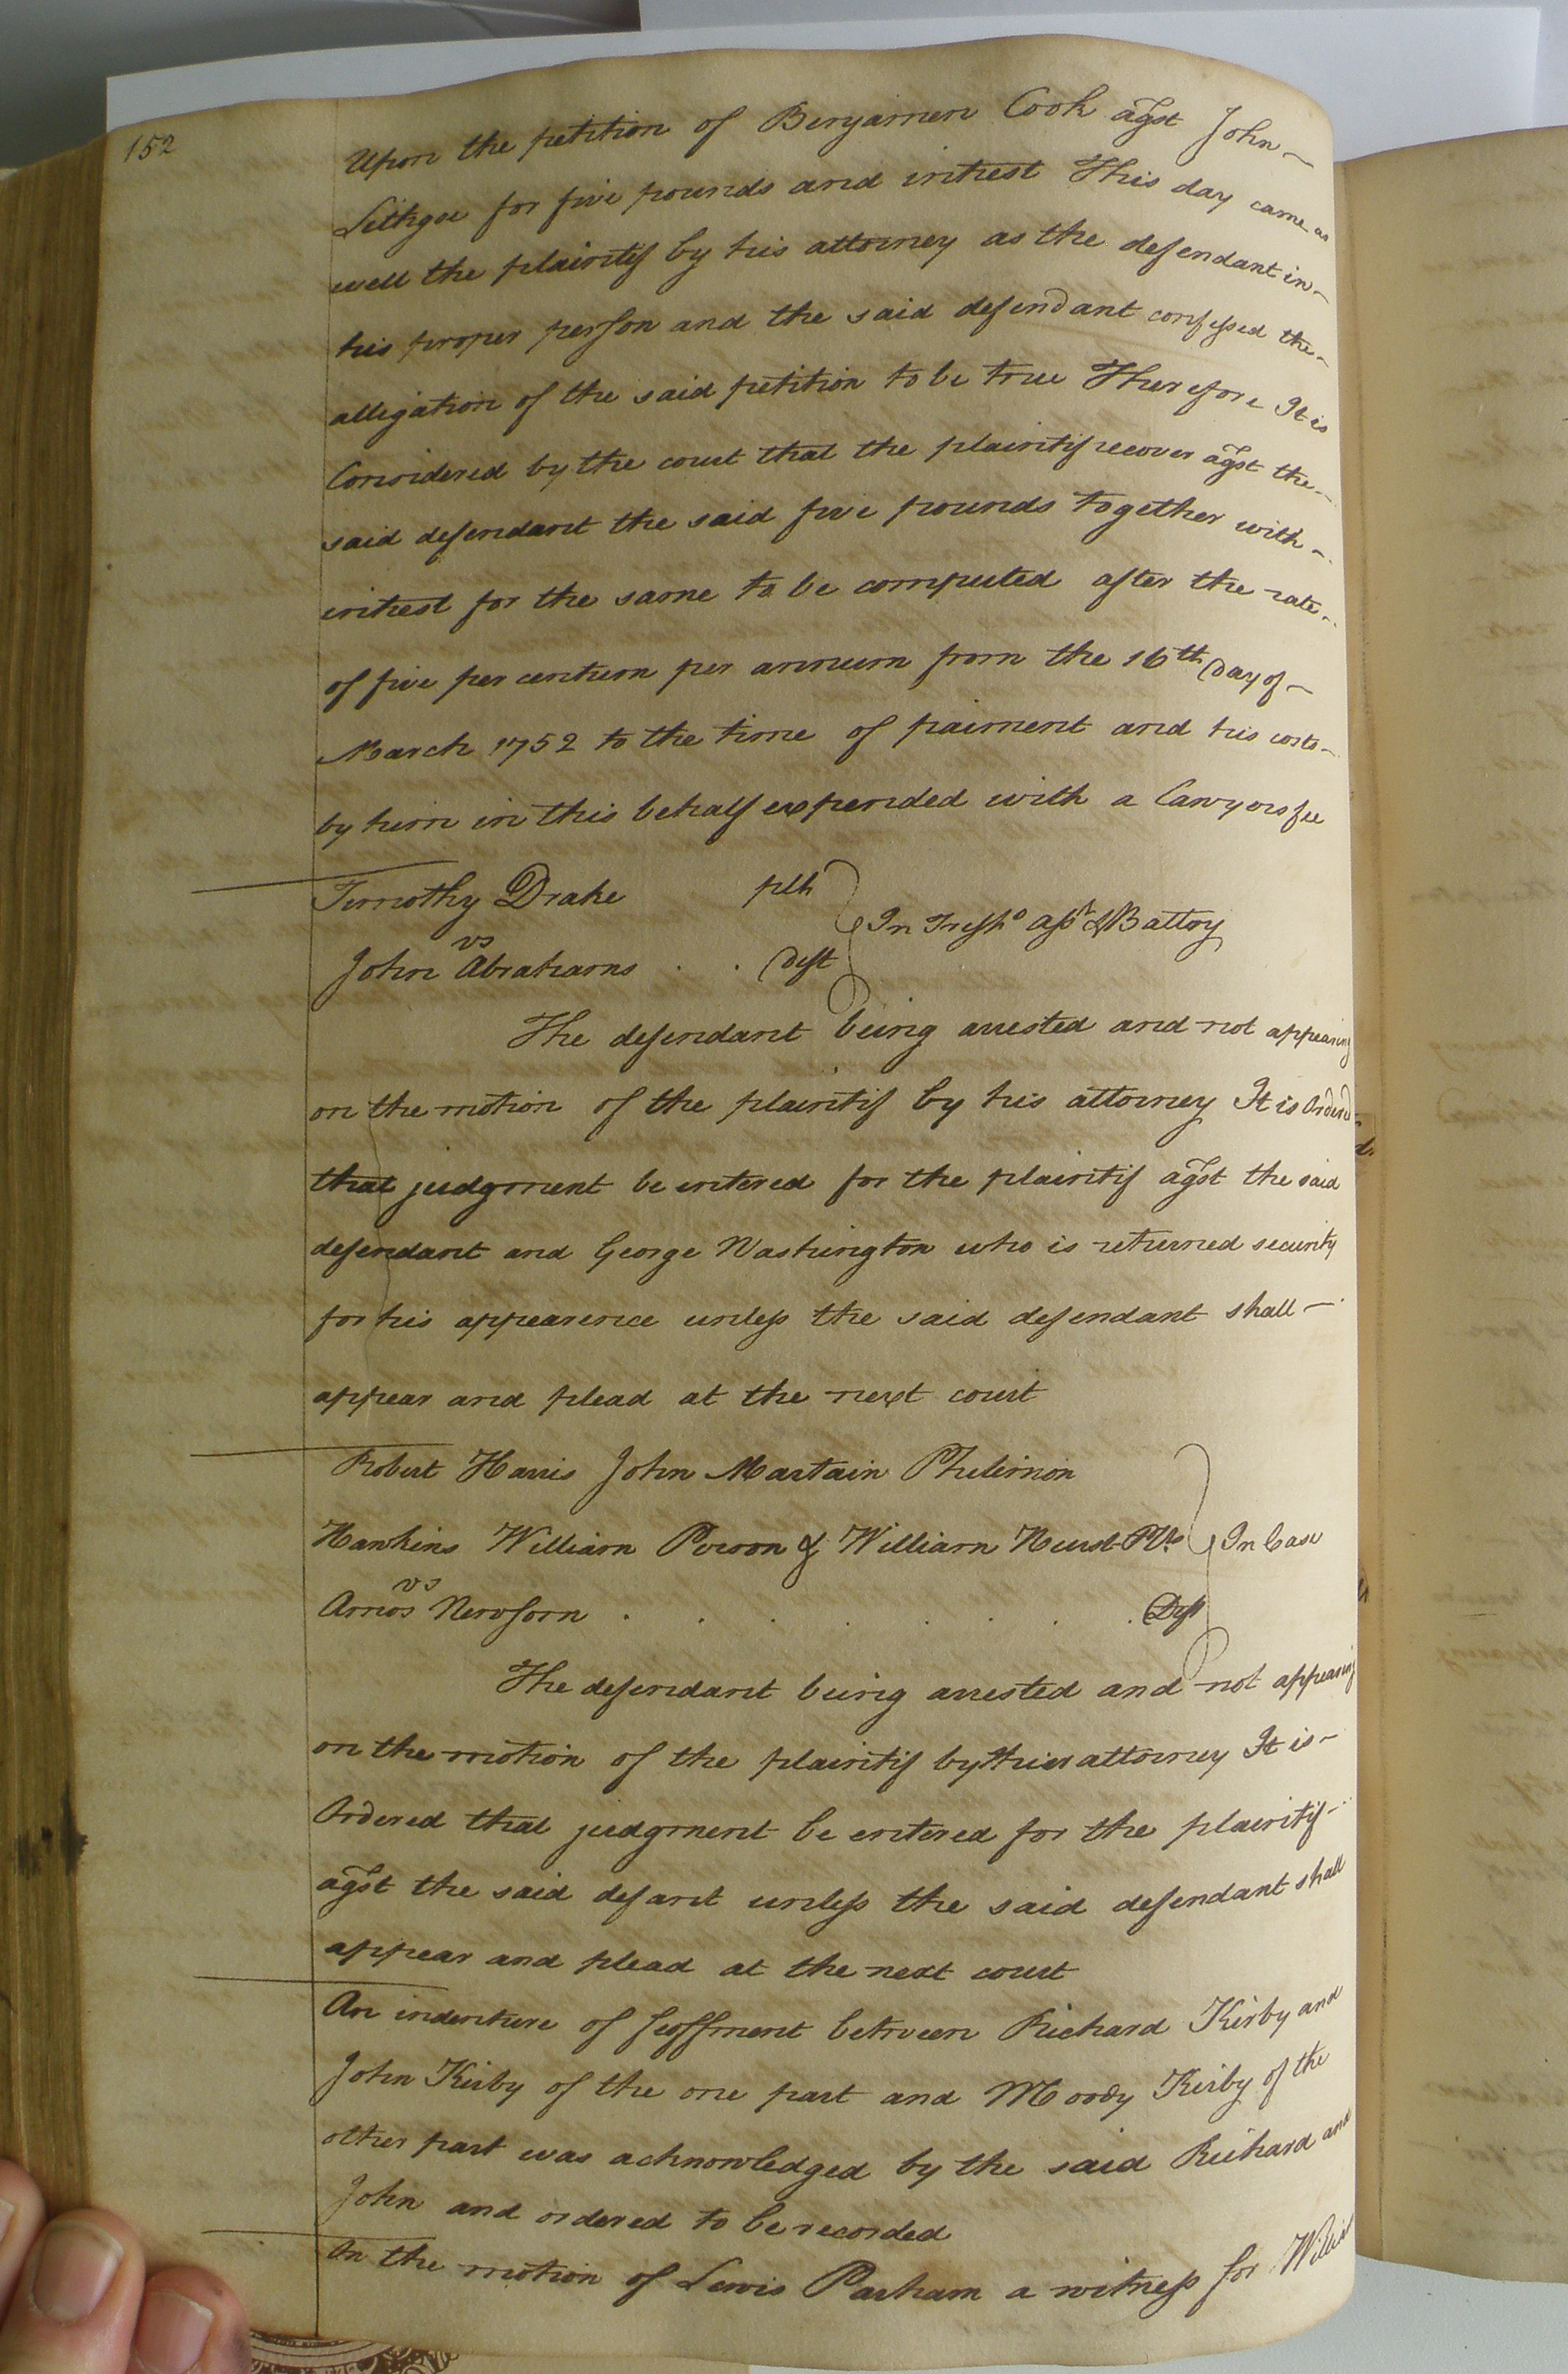 152
Upon the petition of Benjamen Cook agst John
Lithgoe for five pounds and intrest This day came as
well the plaintif by his attorney as the defendant in
his proper person and the said defendant confessed the
alligation of the said petition to be true Therefore It is
Considered by the court that the plaintif recover agst the
said defendant the said five pounds together with
intrest for the same to be computed after the rate
of five per centum per annum from the 16th Day of
March 1752 to the time of paiment and his costs
by him in this behalf expended with a Lawyers fee
Timothy Drake plt
vs In Tresps asst & Battry
John Abrahams . . Deft
The defendant being arrested and not appearing
on the motion of the plaintif by his attorney It is Orderd
that judgment be entered for the plaintif agst the said
defendant and George Washington who is returned security
for his appearence unless the said defendant shall
appear and plead at the next court
Robert Harris John Martain Philimon
Hawkins William Person & William Hurst Plts In Case
vs
Amos Newsom . . . . . . . Deft
The defendant being arrested and not appearing
on the motion of the plaintif by their attorney It is
Ordered that judgment be entered for the plaintif
agst the said defant unless the said defendant shall
appear and plead at the next court
An indenture of feoffment between Richard Kirby and
John Kirby of the one part and Moody Kirby of the
other part was acknowledged by the said Richard and
John and ordered to be recorded
On the motion of Lewis Parham a witness for